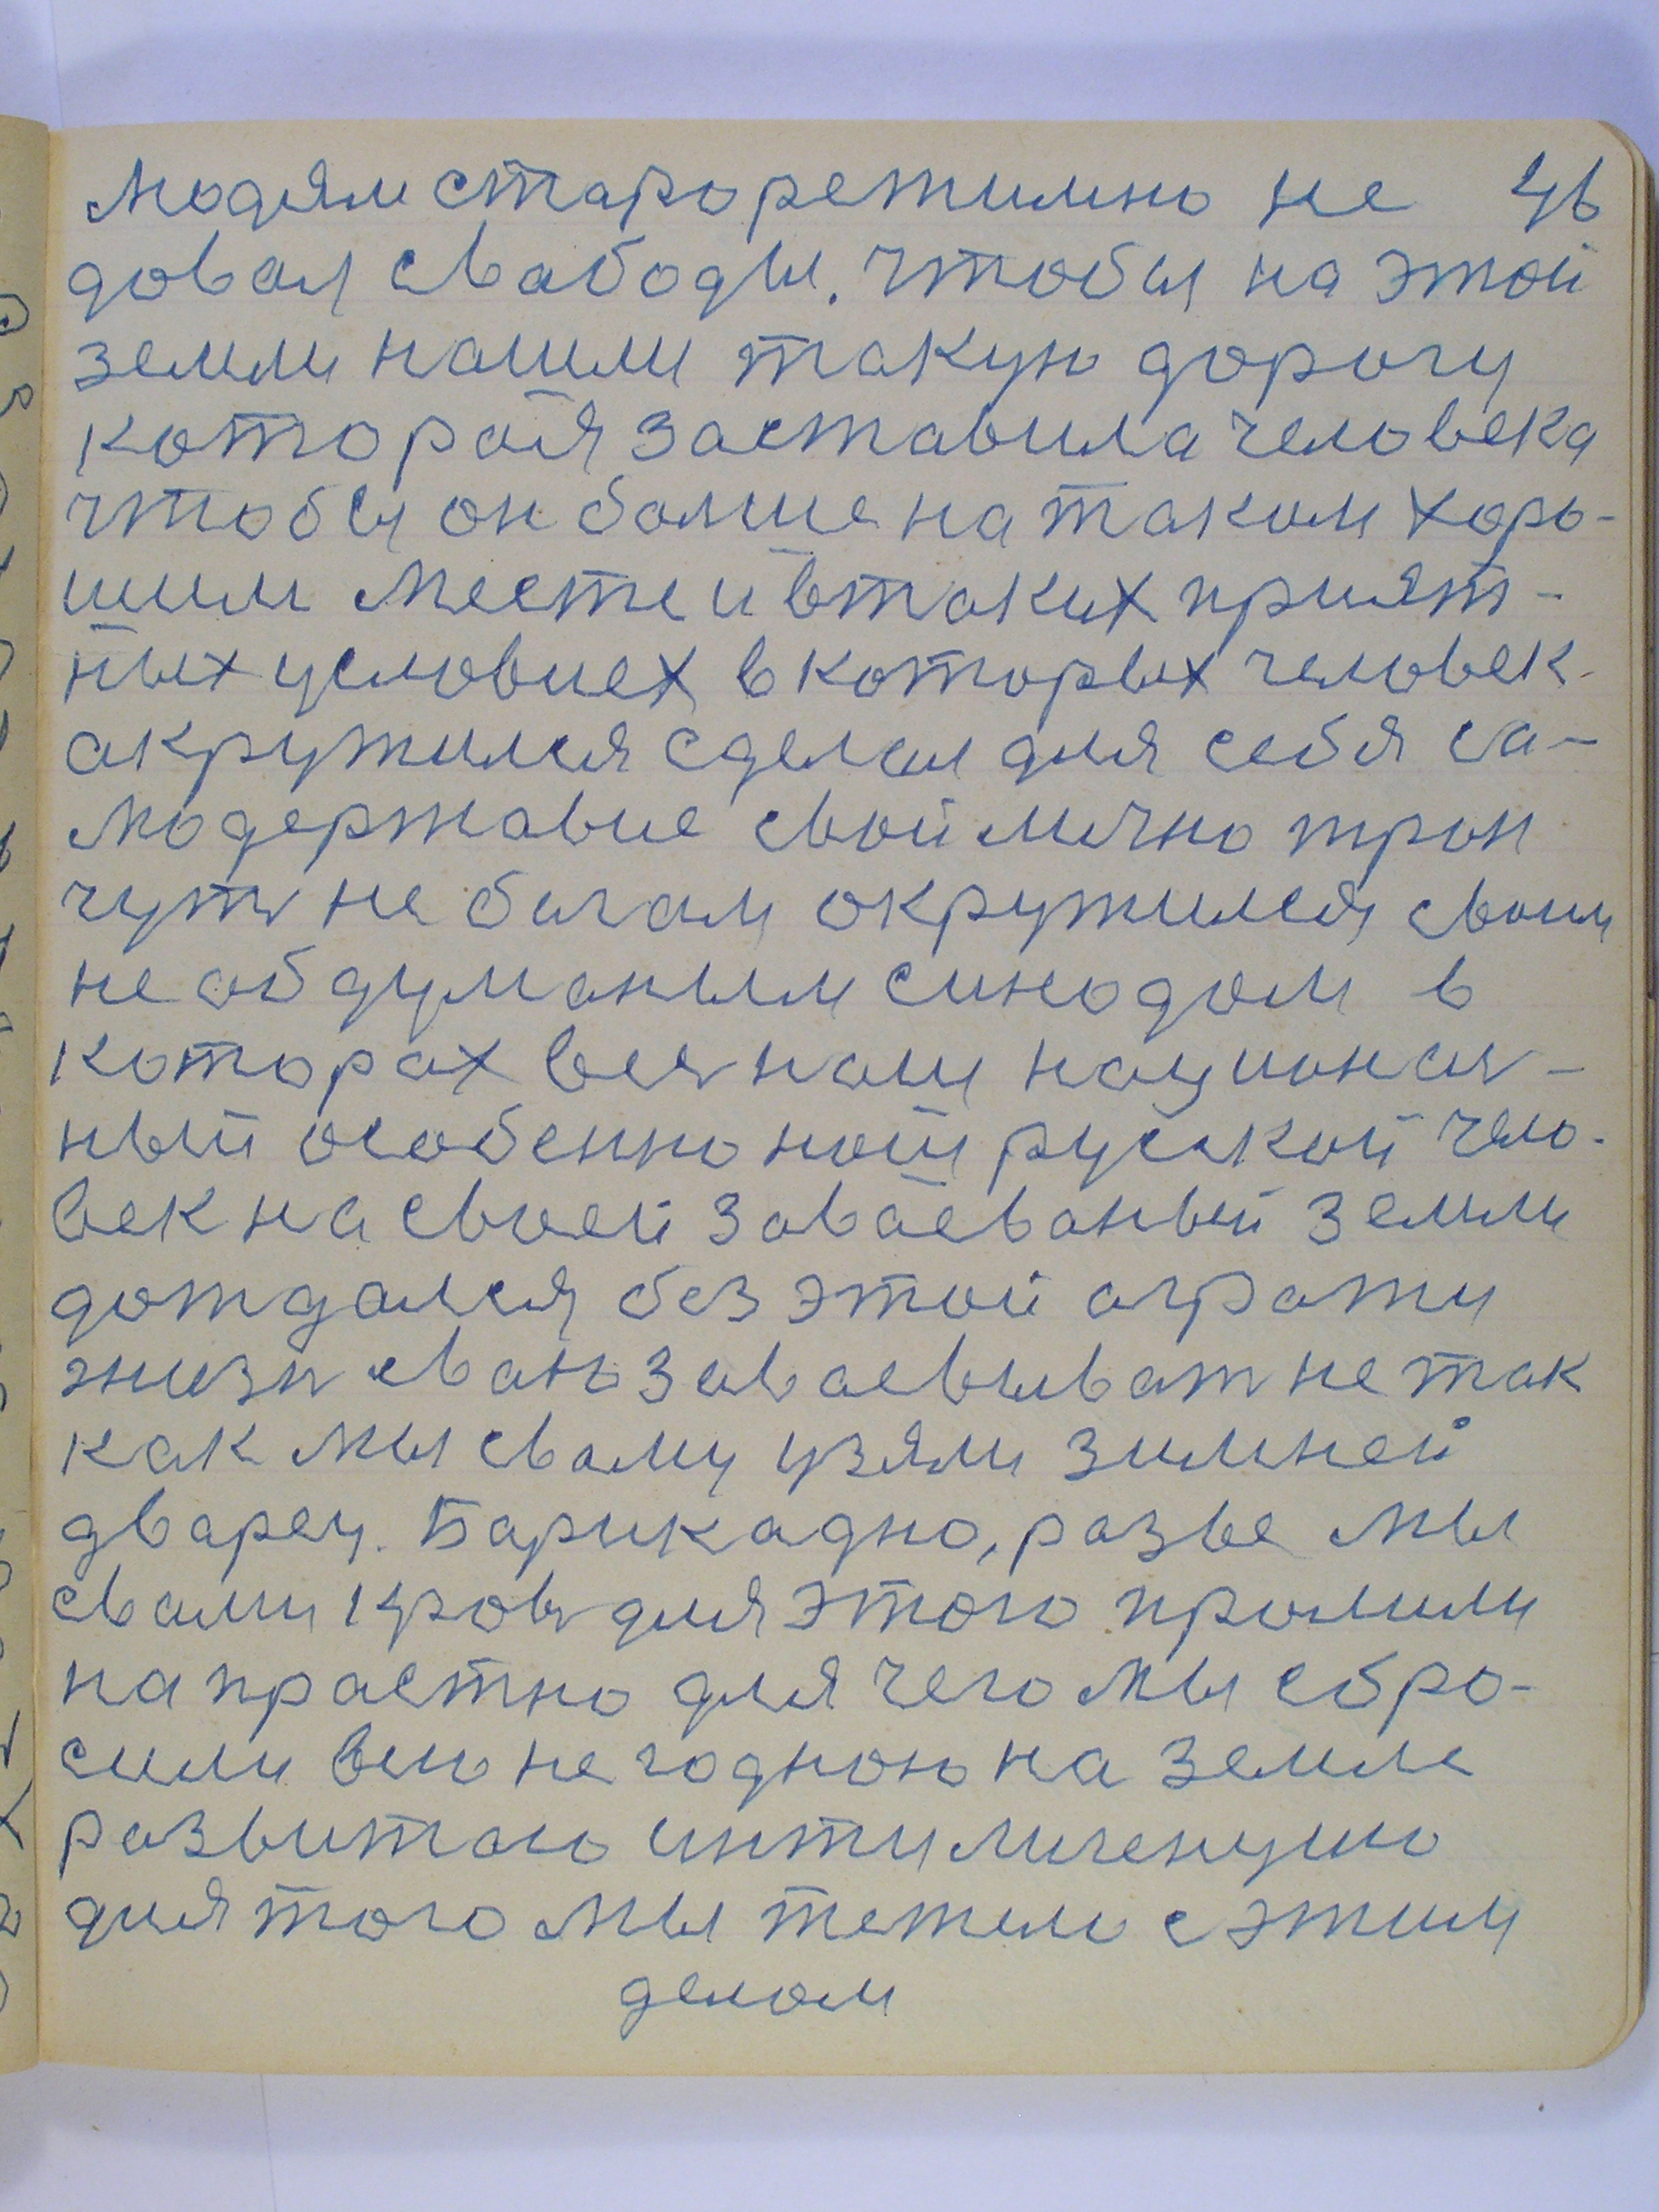 людям старорежимно не 46
довал свабоды. чтобы на этой
земли нашли такую дорогу
которая заставила человека
чтобы он болше на таком хоро-
шим месте и втаких прият-
ных условиех в которых человек
акружился сделал для себя са-
модержавие свой лично трон
чуть не богам окружился своим
не обдуманым синодом в
которах весь наш национал-
ный особенно наш руской чело-
век на своей заваеваный земли
дождался без этой аграты
жизн сваю заваевыват не так
как мы свами узяли зимней
дварец. Барикадно, разве мы
свами кровь для этого пролили
напрастно для чего мы сбро-
сили всю не годною на земле
развитаю интилигенцию
для того мы тежело с этим
делом